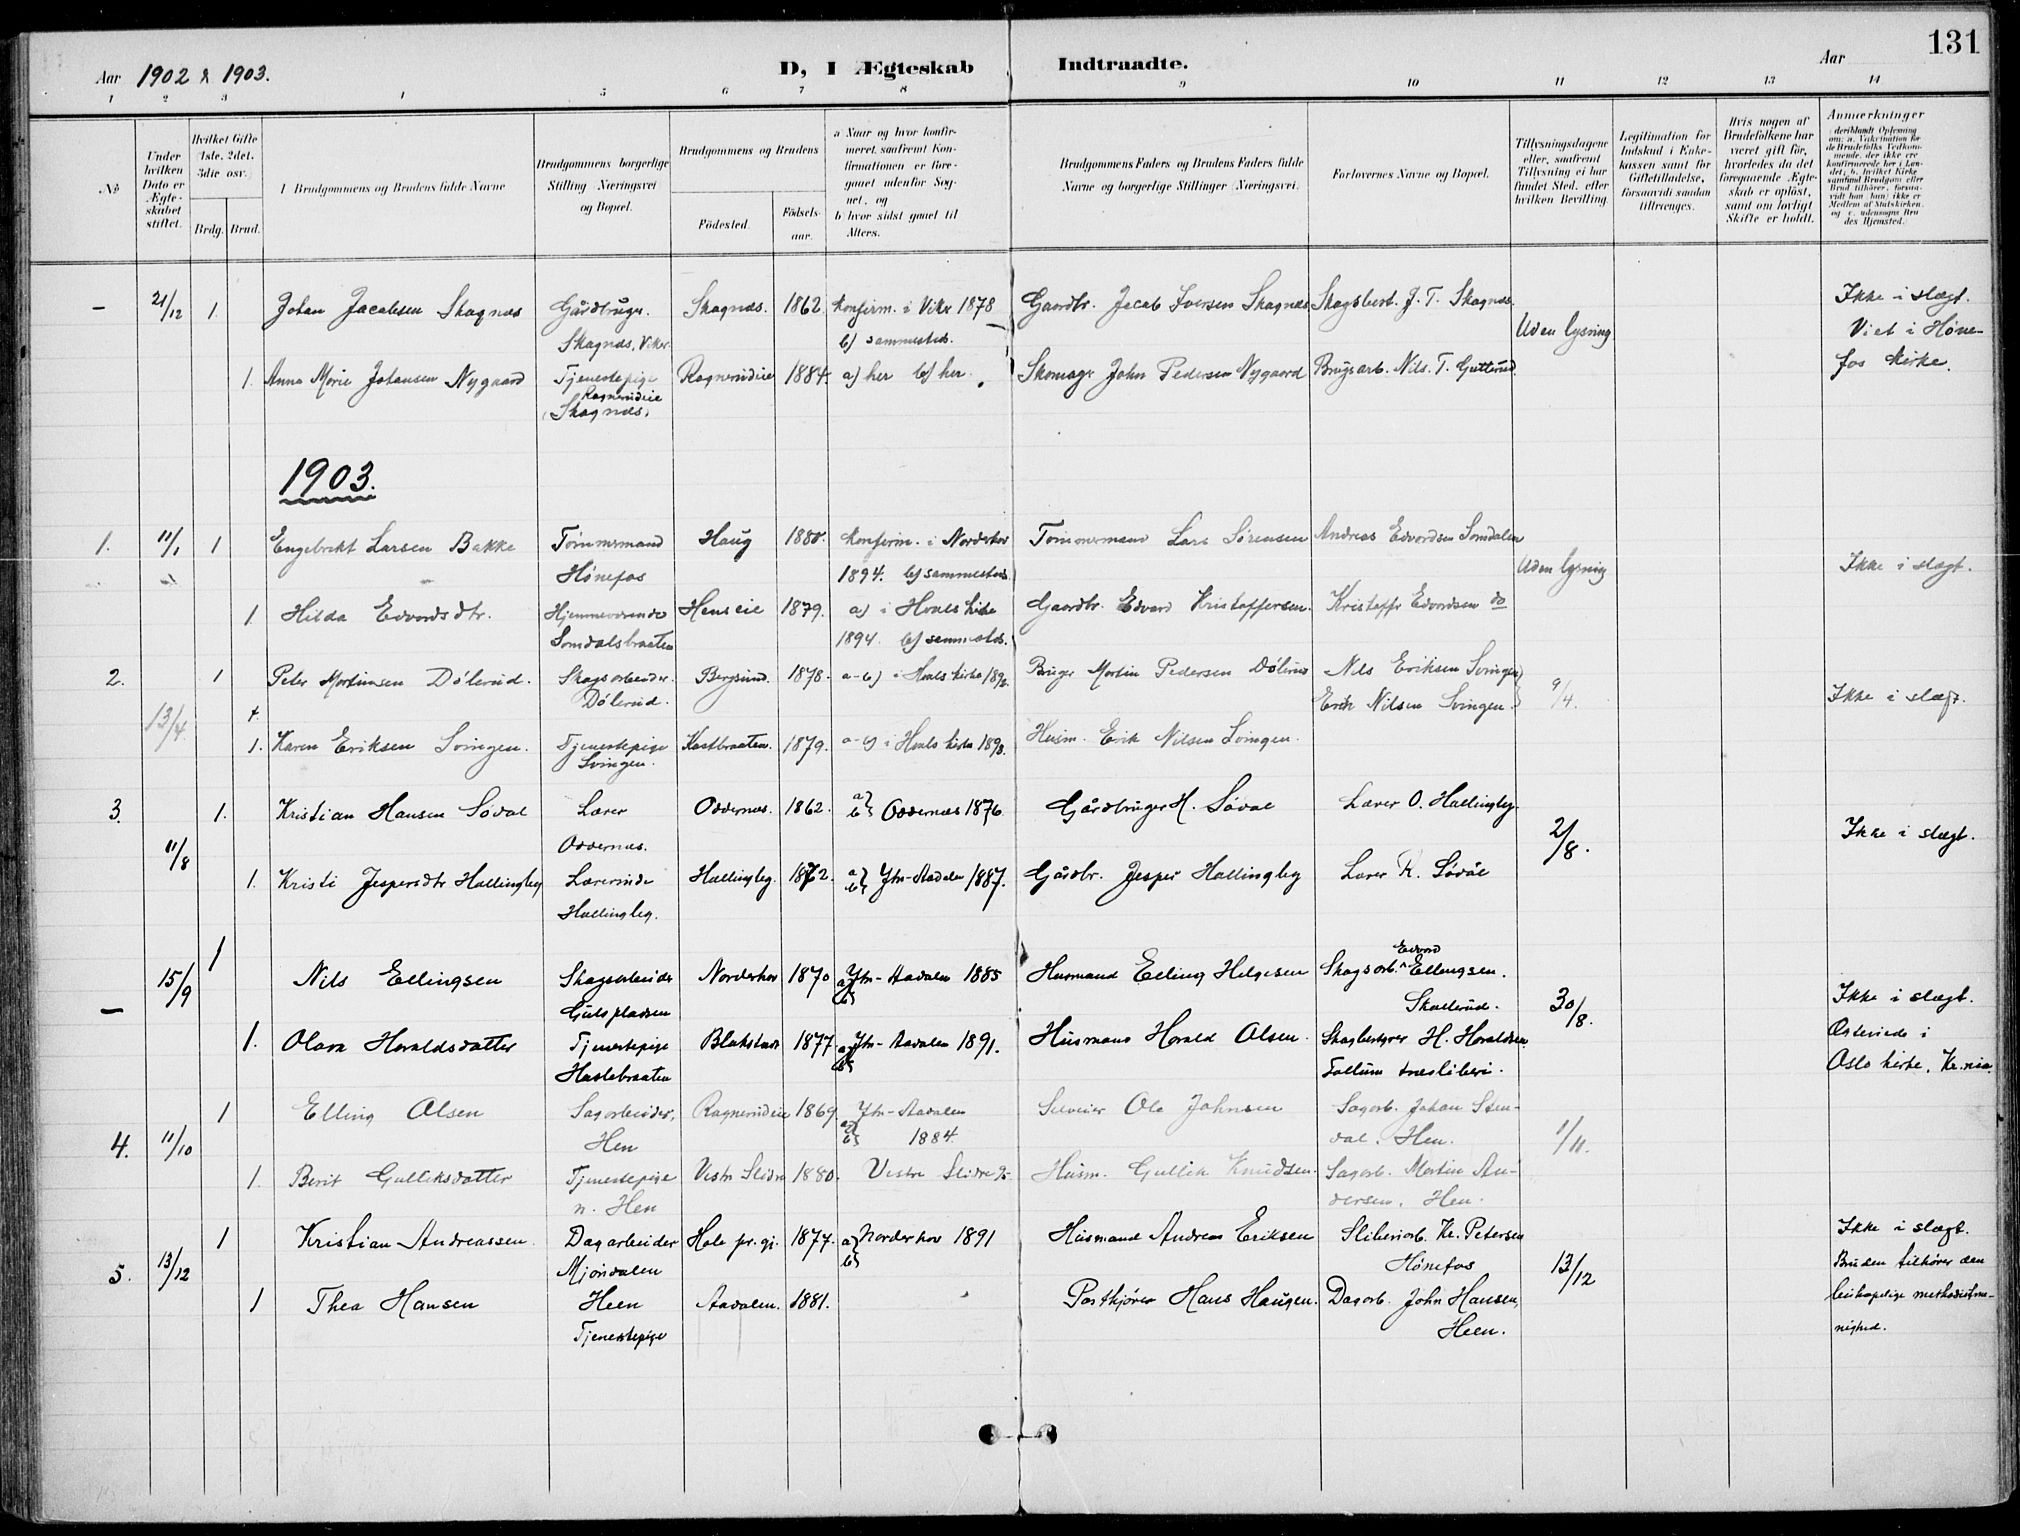 131
Aar 1902 & 1903. D, I Ægteskab Indtraadte. Aar
1 2 3 4 5 6 7 8 9 10 11 12 13 14
No
Under hvilken Dato er Ægteskabet stiftet.
Hvilket Gifte 1ste, 2det, 3die osv.
Brdg. Brud.
Brudgommens og Brudens fulde Navne
Brudgommens borgerlige Stilling Næringsvei og Bopæl.
Brudgommens og Brudens
Födested. Födselsaar.
a Naar og hvor konfirmeret, saafremt Konfirmationen er foregaaet udenfor Sognet, og
b hvor sidst gaaet til Alters.
Brudgommens Faders og Brudens Faders fulde Navne og borgerlige Stillinger (Næringsvei).
Forlovernes Navne og Bopæl.
Tillysningsdagene eller, saafremt Tillysning ei har fundet Sted, efter hvilken Bevilling.
Legitimation for Indskud i Enkekassen samt for Giftetilladelse, forsaavidt saadan tiltrænges.
Hvis nogen af Brudefolkene har været gift før, hvorledes da det foregaaende Ægteskab er opløst, samt om lovligt Skifte er holdt.
Anmærkninger
– 21/12 1. Johan Jacobsen Skagnæs Gårdbruger. Skagnæs, Viker. Skagnæs. 1862 Konfirm. i Viker 1878 b) sammesteds. Gaardbr. Jacob Iversen Skagnæs Skagsbest. J. T. Skagnæs. Uden lysning Ikke i slægt. Viet i Hønefos Kirke.
1. Anna Marie Johansen Nygaard Tjenestepige Ragnerudeie Skagnæs. Ragnerudeie 1884. a) her b) her. Skomager John Pedersen Nygaard Brugsarb. Nils. T. Gutterud.
1903.
1. 11/1 1 Engebrekt Larsen Bakke Tømmermand Hønefos Haug 1880. Konfirm. i Norderhov 1894. b) sammesteds Tømmermand Lars Sørensen Andreas Edvardsen Somdalen Uden lysning Ikke i slægt.
1. Hilda Edvardsdtr. Hjemmeværende Somdalsbraaten Hens eie 1879. a) i Hvals kirke 1894. b) sammesteds. Gaardbr. Edvard Kristoffersen. Kristoffer Edvardsen do
2. 13/4 1 Peter Martinsen Dölerud. Skogsarbeider. Dölerud. Bergsund. 1878. a-b) i Hvals kirke 1892 Bruger Martin Pedersen Dölerud Nils Eriksen Svingen Erik Nilsen Svingen. 9/4. Ikke i slægt.
1. Karen Eriksen Svingen. Tjenestepige Svingen. Kastbraaten. 1879. a-b) i Hvals kirke 1893. Husm. Erik Nilsen Svingen.
3. 11/8 1. Kristian Hansen Sødal Lærer Oddernes. Oddernes. 1862. a) b) Oddernes 1876. Gårdbruger H. Sødal Lærer O. Hallingby. 2/8. Ikke i slægt.
1. Kristi Jespersdtr Hallingby Lærerinde Hallingby. Hallingby. 1872. a) b) Ytre-Aadalen 1887. Gårdbr. Jesper Hallingby Lærer K. Sødal
– 15/9 1 Nils Ellingsen Skogsarbeider Gulspladsen Norderhov 1870 a) b) Ytre-Aadalen 1885 Husmand Elling Helgesen Skogsarb. Edvard Ellingsen. Skallerud. 30/8. Ikke i slægt. Ægteviede i Oslo kirke, Kr.nia.
1. Olava Haraldsdatter Tjenestepige Haslebraaten Blakstad 1877 a) b) Ytre-Aadalen 1891. Husmand Harald Olsen. Skogbestyrer H. Haraldsen Follum træsliberi.
4. 11/10 1 Elling Olsen Sagarbeider, Hen Ragnerudeie 1869 a) b) Ytre-Aadalen 1884. Ole Johnsen Sagarb. Johan Stendal. Hen. 1/11.
1. Berit Gulliksdatter Tjenestepige n. Hen Vestre Slidre 1880. Vestre Slidre 95. Husm. Gullik Knudsen. Sagarb. Martin Andersen, Hen.
5. 13/12 1 Kristian Andreassen. Dagarbeider Mjøndalen Hole pr.gj. 1877. a) b) Norderhov 1891 Husmand Andreas Eriksen Sliberiarb. Kr. Petersen Hønefos 13/12 Ikke i slægt. Bruden tilhører den biskopelige methodistmenighed.
1 Thea Hansen Heen Tjenestepige Aadalen. 1881. Postkjører Hans Haugen. Dagarb. John Hansen, Heen.